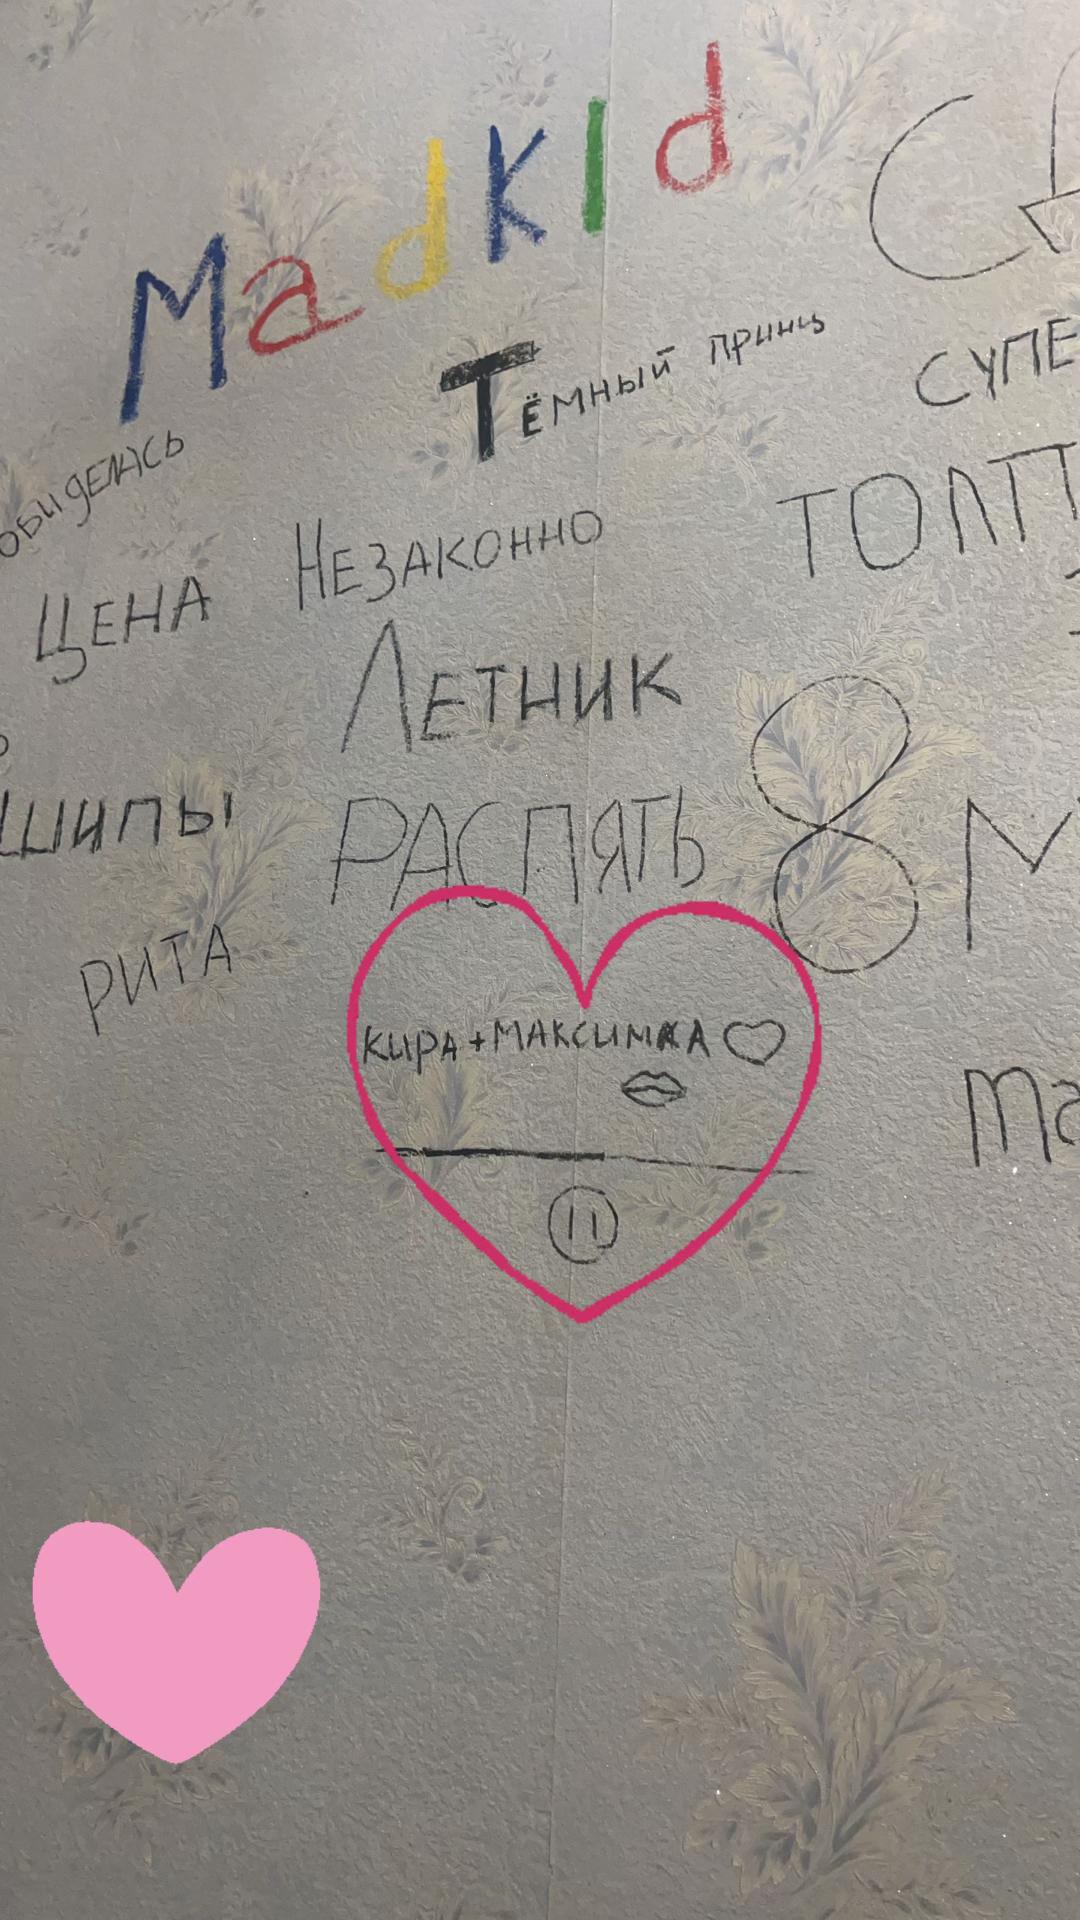 MadKId
Тёмный принц
обиделась
Незаконно
Цена
Летник
шипы
Распять
8
Рита
Кира + Максимка